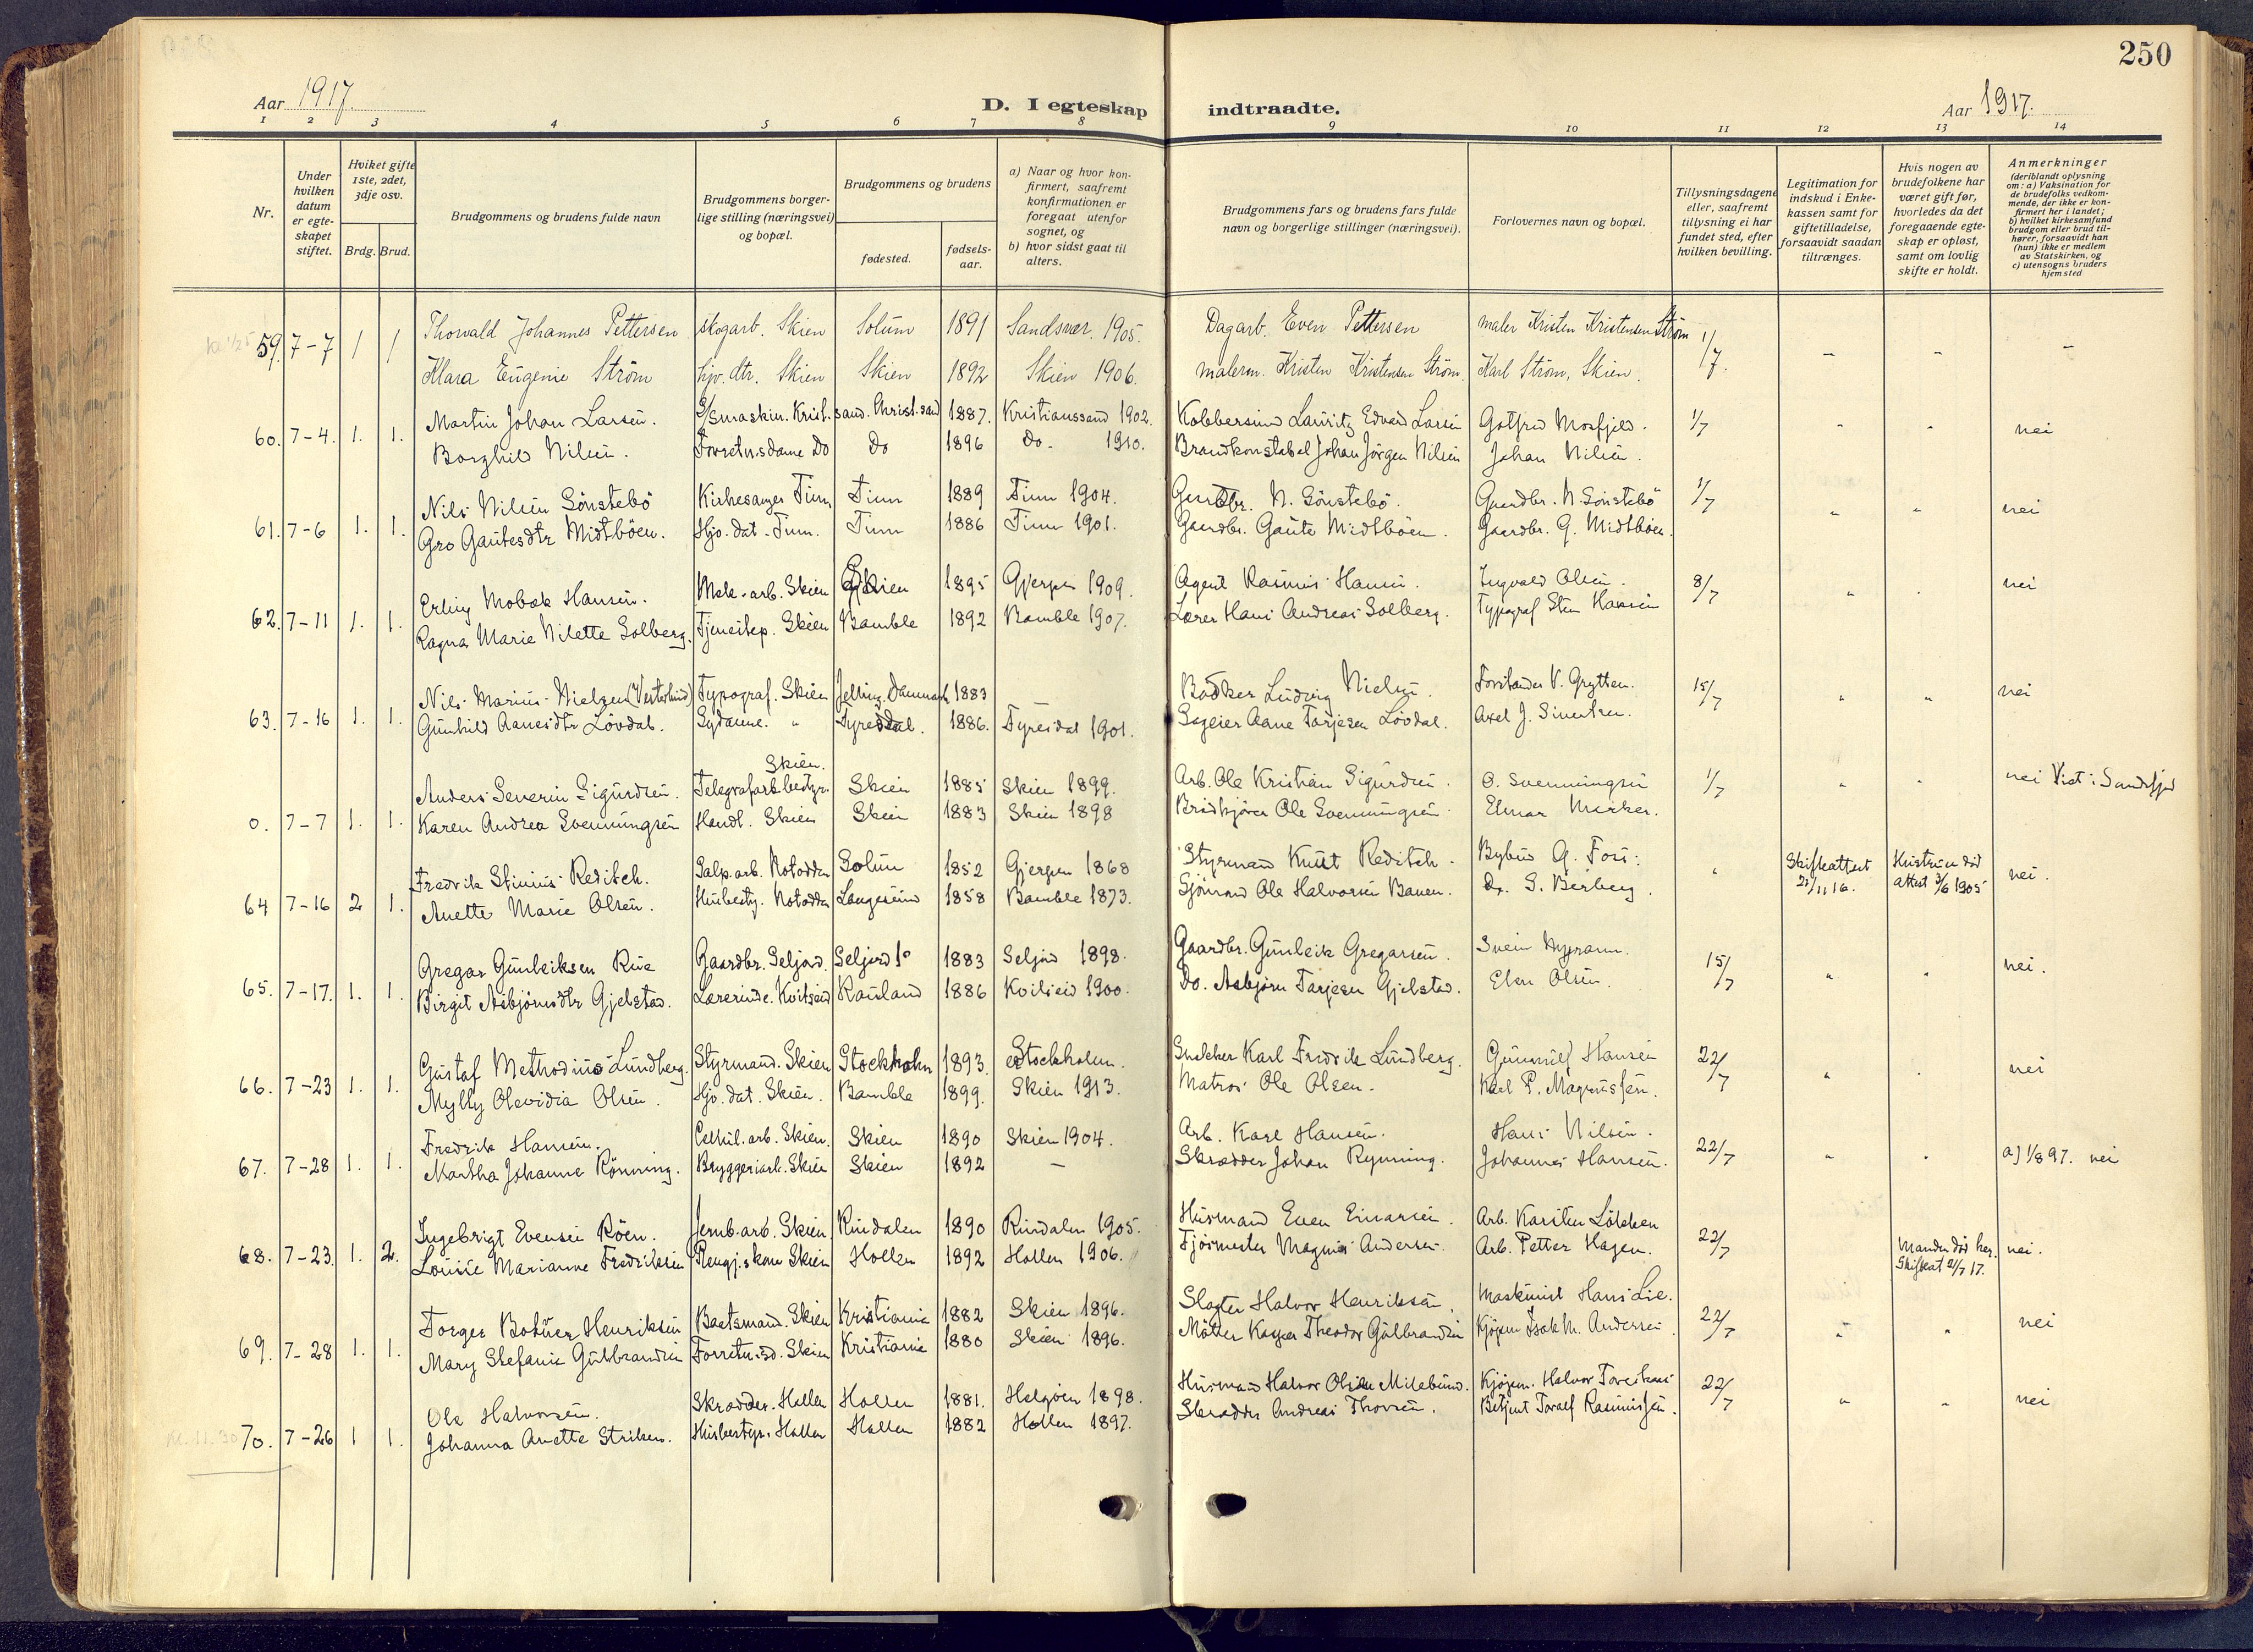 250
Aar 1917.
D. I egteskap indtraadte.
Aar 1917.
1 2 3 4 5 6 7 8 9 10 11 12 13 14
Nr.
Under hvilken datum er egteskapet stiftet.
Hviket gifte 1ste, 2det, 3dje osv.
Brdg. Brud.
Brudgommens og brudens fulde navn
Brudgommens borgerlige stilling (næringsvei) og bopæl.
Brudgommens og brudens
fødested.
fødselsaar.
a) Naar og hvor konfirmert, saafremt konfirmationen er foregaat utenfor sognet, og
b) hvor sidst gaat til alters.
Brudgommens fars og brudens fars fulde navn og borgerlige stillinger (næringsvei).
Forlovernes navn og bopæl.
Tillysningsdagene eller, saafremt tillysning ei har fundet sted, efter hvilken bevilling.
Legitimation for indskud i Enkekassen samt for giftetilladelse, forsaavidt saadan tiltrænges.
Hvis nogen av brudefolkene har været gift før, hvorledes da det foregaaende egteskap er opløst, samt om lovlig skifte er holdt.
Anmerkninger (deriblandt oplysning om: a) Vaksination for de brudefolks vedkommende, der ikke er konfirmert her i landet; b) hvilket kirkesamfund brudgom eller brud tilhører, forsaavidt han (hun) ikke er medlem av Statskirken, og c) utensogns bruders hjemsted
Thorvald Johannes Pettersen skogarb. Skien Solum 1891 Sandsvær 1905. Dagarb. Even Pettersen maler Kristen Kristensen Strøm
59. 7-7 1 1 1/7. - - -
Klara Eugenie Strøm hjv. dtr. Skien Skien 1892 Skien 1906. malerm. Kristen Kristensen Strøm. Karl Strøm, Skien.
Martin Johan Larsen. Smaskin. Krist.sand. Christ.sand 1887. Kristianssand 1902. Kobbersmed Lauritz Edvard Larsen Gotfred Mosfjeld.
60. 7-4. 1. 1. 1/7 " " nei
Borghild Nilsen. Forretn.sdame Do Do 1896 Do. 1910. Brandkonstabel Johan Jørgen Nilsen Johan Nilsen.
Nils Nilsen Sönstebö Kirkesanger Tinn Tinn 1889 Tinn 1904. Gardbr. N. Sönstebö. Gardbr. N. Sönstebö
61. 7-6 1. 1. 1/7 " " nei
Gro Gautesdtr Midtböen. Hjv. dat. Tinn. Tinn 1886 Tinn 1901. Gaardbr. Gaute Midtböen. Gaardbr. G. Midtböen.
Erling Mobæk Hansen. Mek. arb. Skien Skien 1895 Gjerpen 1909. Agent Rasmus Hansen. Ingvald Olsen.
62. 7-11 1. 1. 8/7 " . nei
Ragna Marie Nilette Solberg. Tjenestep. Skien Bamble 1892 Bamble 1907. Lærer Hans Andreas Solberg. Typograf Sten Hansen
Nils Marius Nielsen (Vesterlund) Typograf. Skien Jelling, Danmark 1883 Bødker Ludvig Nielsen. Forstander V. Grytten.
63. 7-16 1. 1. 15/7 " " nei
Gunhild Aanesdtr Lövdal. Sydame. " Tyresdal. 1886. Tyresdal 1901. Sageier Aane Tarjesen Lövdal. Axel J. Simensen.
Skien.
Anders Severin Sigurdsen. Telegrafarb.bestyr. Skien 1885 Skien 1899. Arb. Ole Kristian Sigurdsen. O. Svenningsen
0. 7-7 1. 1. 1/7 " . nei Viet i Sandefjord
Karen Andrea Svenningsen Handl. Skien Skien 1883 Skien 1898 Ole Svenningsen Elmar Merker.
Fredrik Stinius Reditch. Salp.arb. Notodden Solum 1852 Gjerpen 1868 Styrmand Knut Reditch. Bybud G. Foss.
64 7-16 2 1. " Skifteattest 21/11 16. Hustruen död attest 3/6 1905 nei.
Anette Marie Olsen. Husbesty. Notodden Langesund 1858 Bamble 1873. Sjömand Ole Halvorsen Bauen. Dr. S. Berberg
Gregar Gunleiksen Rue Gaardbr. Seljord. Seljord 1883 Seljord 1898. Gaardbr. Gunleik Gregarsen. Svein
65. 7-17. 1. 1. 15/7 " " nei.
Birgit Asbjörnsdtr Gjelstad. Lærerinde. Kvitseid Rauland 1886 Kviteseid 1900. Do. Asbjörn Tarjesen Gjelstad. Olsen.
Gustaf Methodius Lundberg. Styrmand. Skien Stockholm 1893. Stockholm. Snekker Karl Fredrik Lundberg. Gunnulf Hansen
66. 7-23 1. 1. 22/7 " . nei
Mylly Olevidia Olsen. Hjv. dat. Skien. Bamble 1899. Skien 1913. Matros Ole Olsen. Karl P. Magnussen.
Fredrik Hansen. Cellul. arb. Skien. Skien 1890 Skien 1904. Arb. Karl Hansen. Hans Nilsen.
67. 7-28 1. 1. 22/7 " . a) 1/8 97. nei
Martha Johanne Rönning. Bryggeriarb. Skien Skien 1892 - Skrædder Johan Rynning. Johannes Hansen.
Ingebrigt Evensen Röen. Jernb. arb. Skien Rindalen 1890 Rindalen 1905. Husmand Even Einarsen. Arb. Karsten Lökken
68. 7-23. 1. 2. 22/7 Manden död her. Skifteat 21/7 17. nei.
Louise Marianne Fredriksen Rengj.skone Skien Hollen 1892 Hollen 1906. Fjörmester Magnus Andersen. Arb. Petter Hagen.
Torger Bottner Henriksen Baatsmand. Skien Kristiania 1882 Skien 1896. Slagter Halvor Henriksen. Maskinist Hans Lie.
69. 7-28 1. 1. 22/7 " " nei
Mary Stefanie Gulbrandsen Forretn.sd. Skien Kristiania 1880 Skien 1896. Möller Kasper Theodor Gulbrandsen Kjöpm. Isak M. Andersen.
Ole Halvorsen. Skrædder. Hollen Hollen 1881. Helgöen 1898. Husmand Halvor Olsen Milebund. Kjöpm. Halvor
70. 7-26 1 1. 22/7 " " nei
Johanna Anette Striken. Husbestyr. Hollen Hollen 1882 Hollen 1897. Skrædder Andreas Thorsen. Betjent Toralf Rasmussen.